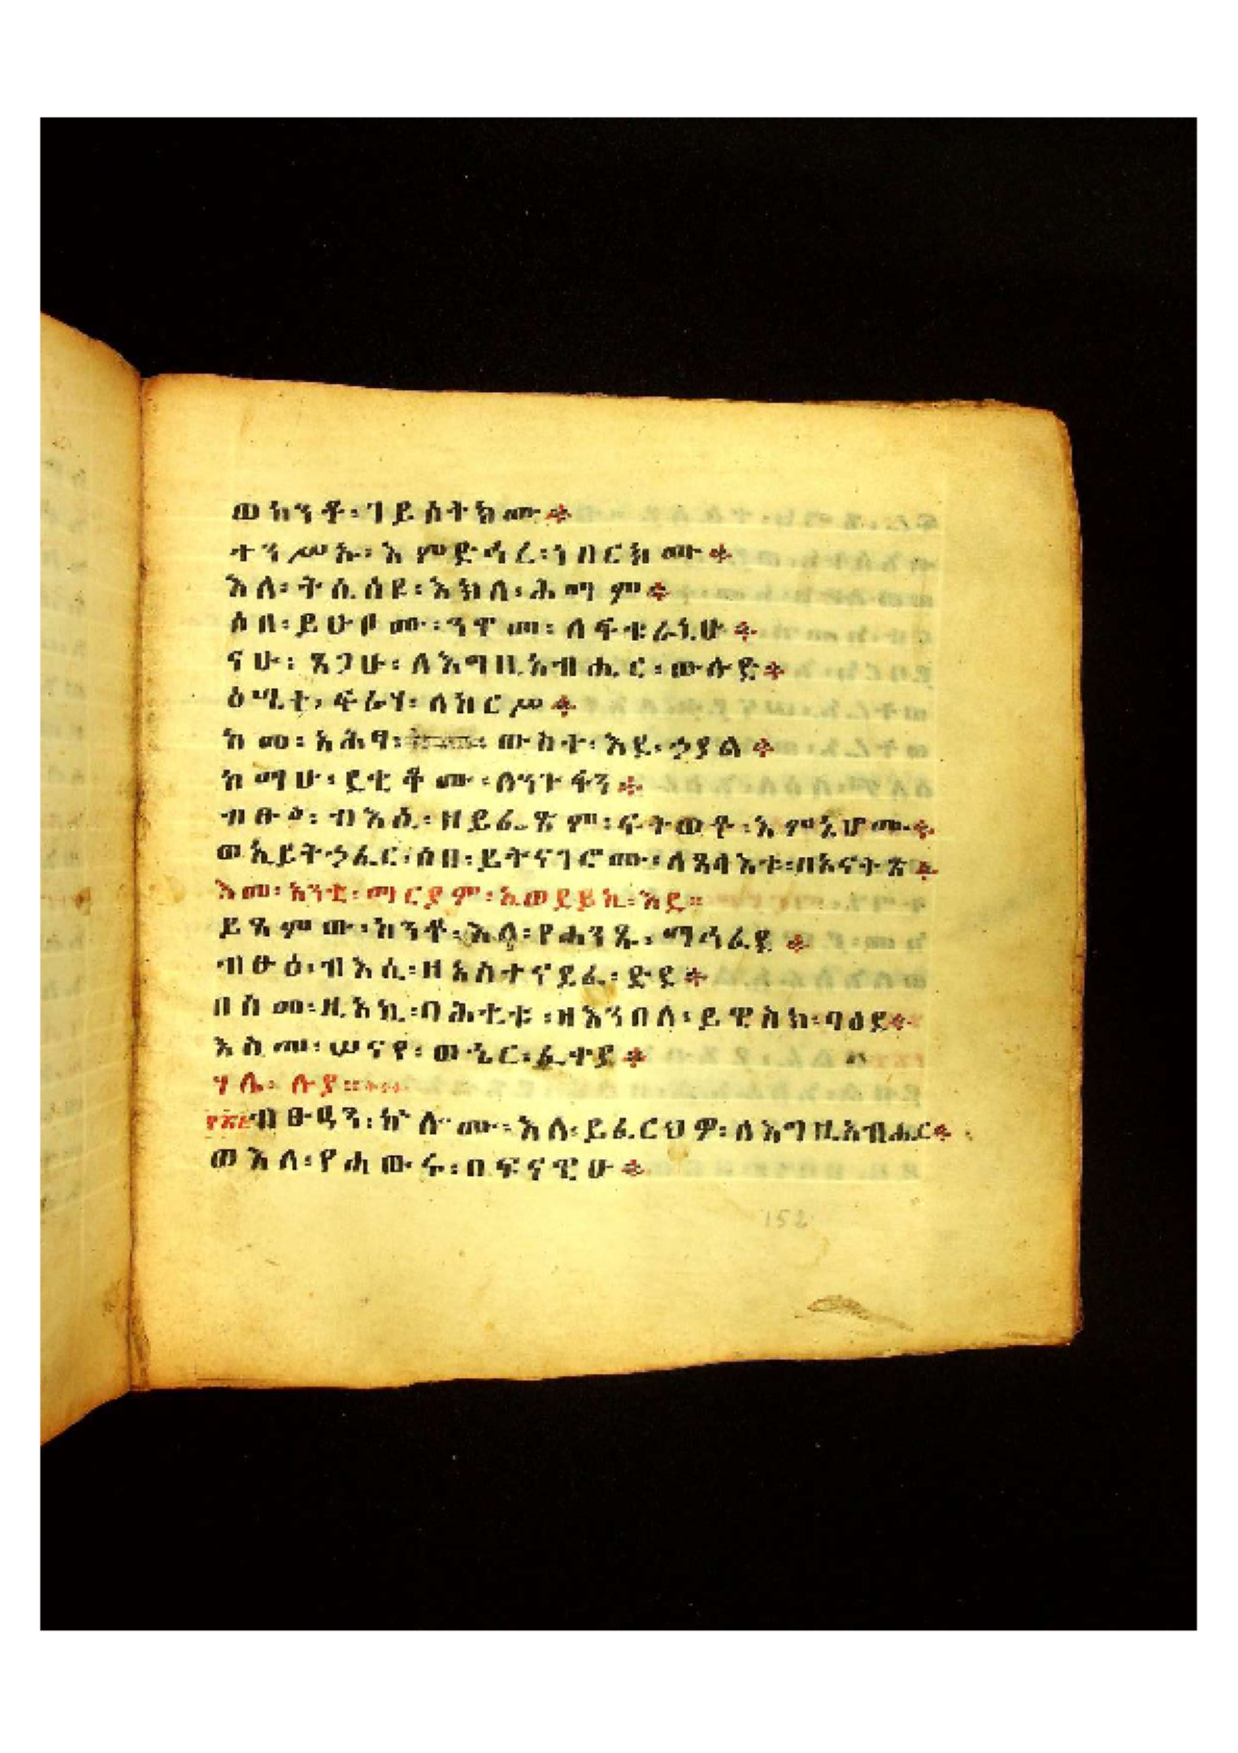 ወከንቶ፡ ገይስትክሙ፨
ተንሥኡ፡ እምድኅረ፡ ነበርክሙ፨
እለ፡ ትሴሰዩ፡ እክለ፡ ሕማም፨
ሶበ፡ ይሁቦሙ፡ ንዋመ፡ ለፍቁራኒሁ፨
ናሁ፡ ጸጋሁ፡ ለእግዚአብሔር፡ ውሉድ፨
ዕሤተ፡ ፍሬሃ፡ ለከርሥ፨
ከመ፡ አሕፃ፡ ውስተ፡ እደ፡ ኃያል፨
ከማሁ፡ ደቂቆሙ፡ ለንጉፋን፨
ብፁዕ፡ ብእሲ፡ ዘይፌጽም፡ ፍትወቶ፡ እምኔሆሙ፨
ወኢይትኃፈር፡ ሶበ፡ ይትናገሮሙ፡ ለጸላእቱ፡ በአናቅጽ፨
እመ፡ አንቲ፡ ማርያም፡ ኢወደይኪ፡ እደ፡፡
ይጻምው፡ ከንቶ፡ እለ፡ የሐንጹ፡ ማኅፈደ፨
ብፁዕ፡ ብእሲ፡ ዘአስተናደፈ፡ ድደ፨
በስመ፡ ዚአኪ፡ ባሕቲቱ፡ ዘእንበለ፡ ይዌስክ፡ ባዕደ፨
እስመ፡ ሠናየ፡ ወኄር፡ ፈተደ፨
ሃሌ፡ ሉያ፡፡
ብፁዓን፡ ኵሎሙ፡ እለ፡ ይፈርህዎ፡ ለእግዚአብሔር፨
ወእለ፡ የሐውሩ፡ በፍናዊሁ፨
152